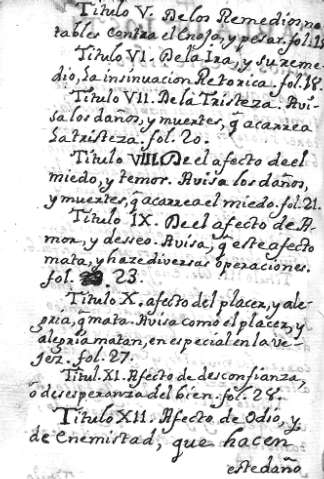 Titulo V. De los Remedios no
tables contra el Enojo, y pesar. fol. 15
Titulo VI. De la Ira, y su reme-
dio, la insinuacion Retorica. fol. 18.
Titulo VII. De la Tristeza. Avi-
sa los daños, y muertes, q̃ acarrea
la tristeza. fol. 20.
Titulo VIII. De el afecto de el
miedo, y temor. Avisa los daños,
y muertes, q̃ acarrea el miedo. fol. 21.
Titulo IX. De el afecto de A-
mor, y desseo. Avisa, q̃ este afecto
mata, y haze diversas operaciones.
fol. 23.
Titulo X. afecto del placer, y ale-
gria, q̃ mata. Avisa como el placer, y
alegria matan, en especial en la ve-
jez. fol. 27.
Titul. XI. Afecto de desconfianza,
ò desesperanza del bien. fol. 28.
Titulo XII. Afecto de Odio, y
de Enemistad, que hacen
este daño